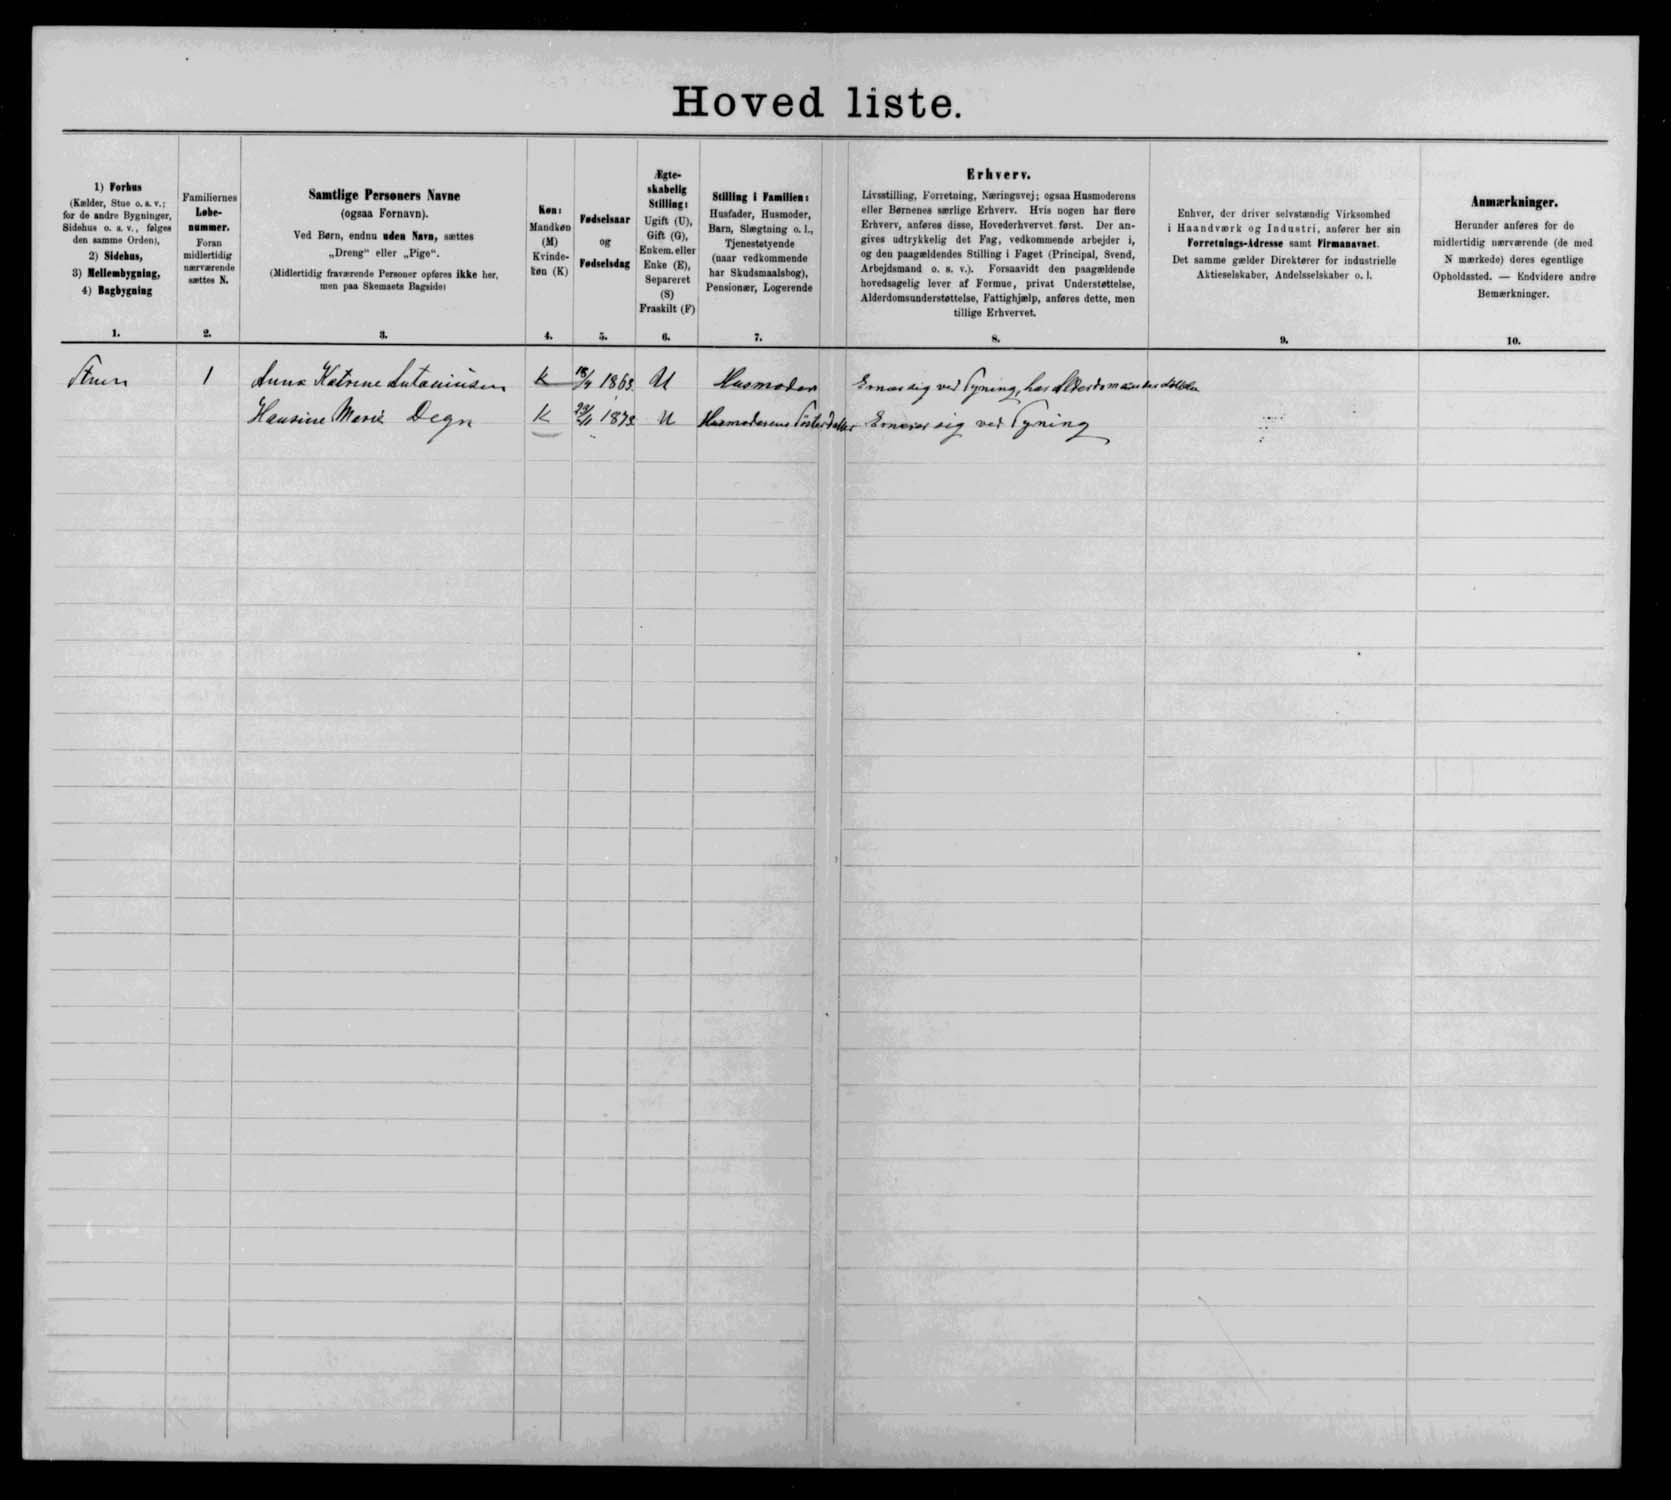 Hoved liste.
1) Forhus
(Kælder, Stue o. s. v.;
for de andre Bygninger,
Sidehus o. s. v., følges
den samme Orden),
2) Sidehus,
3) Mellembygning,
4) Bagbygning
1.
Familiernes
Løbe-
nummer.
Foran
midlertidig
nærværende
sættes N.
2.
Samtlige Personers Navne
(ogsaa Fornavn).
Ved Børn, endnu uden Navn, sættes
„Dreng“ eller „Pige“.
(Midlertidig fraværende Personer opføres ikke her,
men paa Skemaets Bagside)
3.
Køn:
Mandkøn
(M)
Kvinde-
køn (K)
4.
Fødselsaar
og
Fødselsdag
5.
Ægte-
skabelig
Stilling:
Ugift (U),
Gift (G),
Enkem. eller
Enke (E),
Separeret
(S)
Fraskilt (F)
6.
Stilling i Familien:
Husfader, Husmoder,
Barn, Slægtning o. l.,
Tjenestetyende
(naar vedkommende
har Skudsmaalsbog),
Pensionær, Logerende
7.
Erhverv.
Livsstilling, Forretning, Næringsvej; ogsaa Husmoderens
eller Børnenes særlige Erhverv. Hvis nogen har flere
Erhverv, anføres disse, Hovederhvervet først. Der an-
gives udtrykkelig det Fag, vedkommende arbejder i,
og den paagældendes Stilling i Faget (Principal, Svend,
Arbejdsmand o. s. v.). Forsaavidt den paagældende
hovedsagelig lever af Formue, privat Understøttelse,
Alderdomsunderstøttelse, Fattighjælp, anføres dette, men
tillige Erhvervet.
8.
Enhver, der driver selvstændig Virksomhed
i Haandværk og Industri, anfører her sin
Forretnings-Adresse samt Firmanavnet.
Det samme gælder Direktører for industrielle
Aktieselskaber, Andelsselskaber o. l.
9.
Anmærkninger.
Herunder anføres for de
midlertidig nærværende (de med
N mærkede) deres egentlige
Opholdssted. — Endvidere andre
Bemærkninger.
10.
1 Anna Katrine K 18/4 U Husmoder sig ved Syning, har
Hansine Marie Degn K 1873 U Husmoderens Søsterdatter Ernærer sig ved Syning